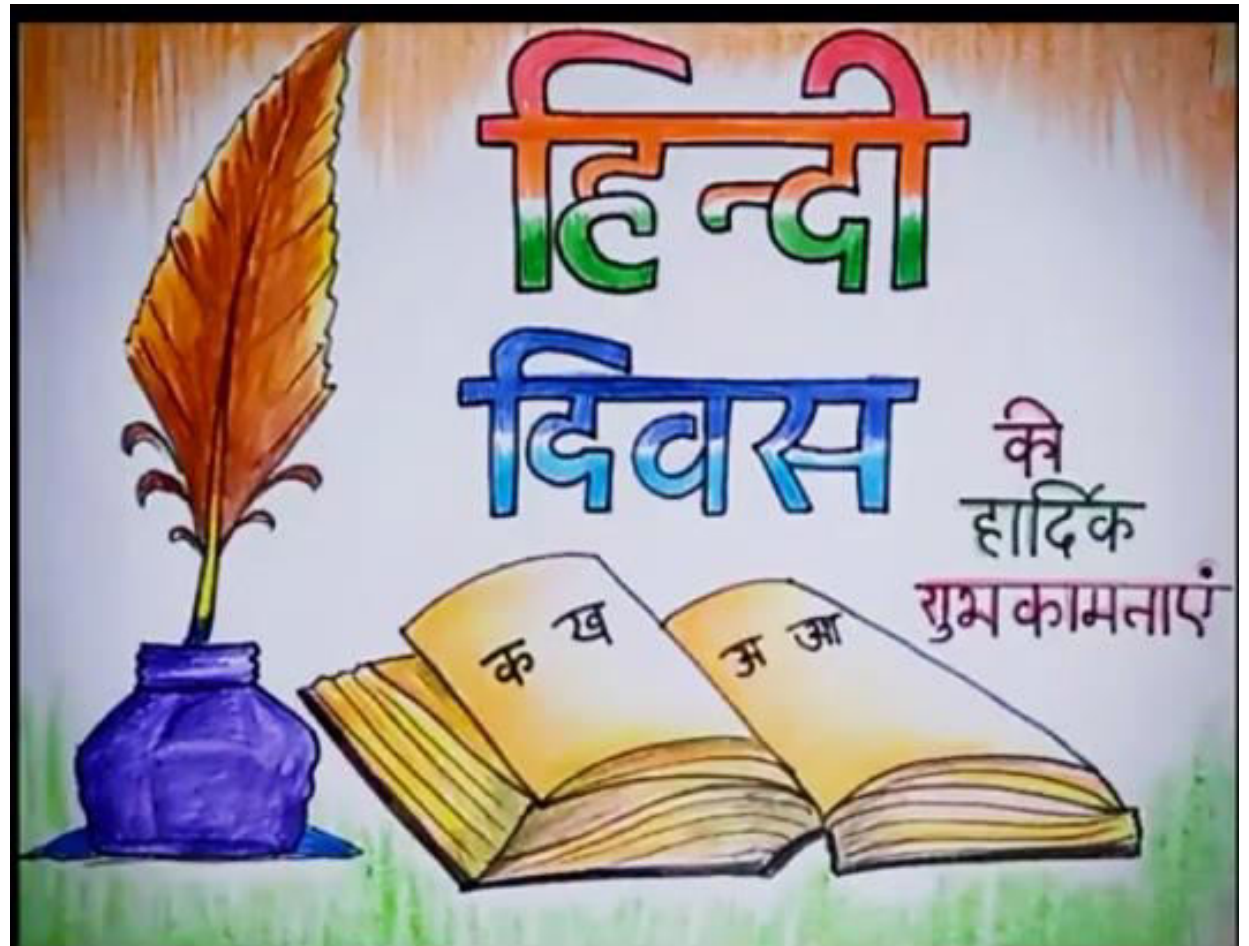 हिन्दी
दिवस
की
हार्दिक
शुभकामनाएं
क ख
अ आ